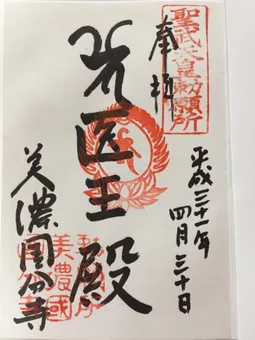 聖武天皇勅願所
奉拝
平成三十一年
四月三十日
医王殿
美濃国分寺
美濃國